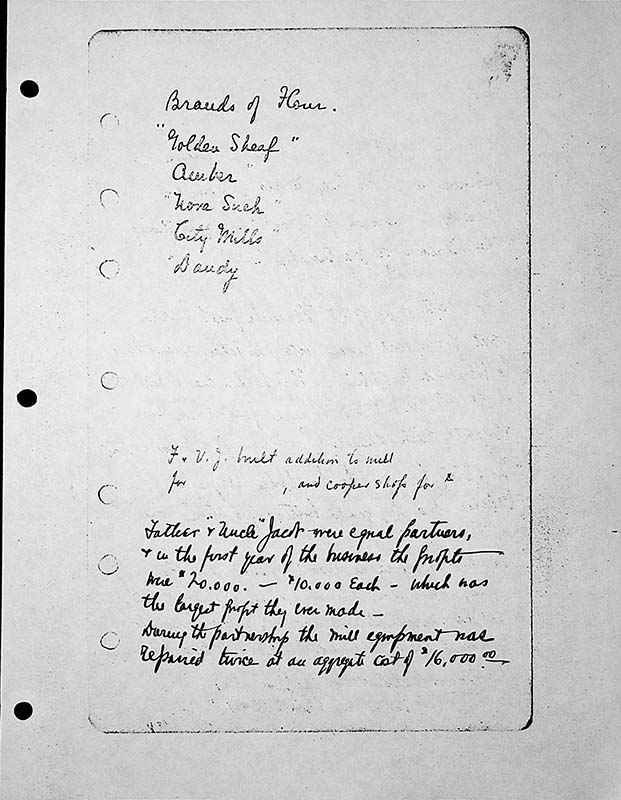 Brands of Flour.
"Golden Sheaf"
"Amber"
"None Such"
"City Mills"
"Dandy"
F + U. J. built addition to mill
for , and cooper shops for $
Father + "Uncle" Jacob were equal partners,
+ in the first year of the business the profits
were $20.000. — $10.000 Each – which was
the largest profit they ever made –
During the partnership the mill equipment was
repaired twice at an aggregate cost of $16,000.00